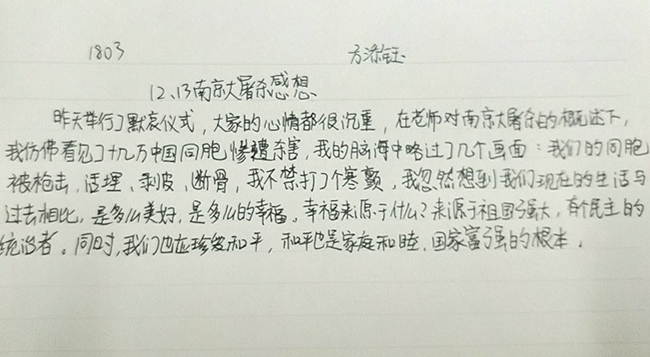 1803 方添钰
12.13南京大屠杀感想
昨天举行了默哀仪式，大家的心情都很沉重，在老师对南京大屠杀的概述下，
我仿佛看见了十几万中国同胞惨遭杀害，我的脑海中略过了几个画面：我们的同胞
被枪击，活埋、剥皮、断骨，我不禁打了个寒颤，我忽然想到我们现在的生活与
过去相比，是多么美好，是多么的幸福。幸福来源于什么？来源于祖国强大，有个民主的
统治者。同时，我们也应珍爱和平，和平也是家庭和睦、国家富强的根本。